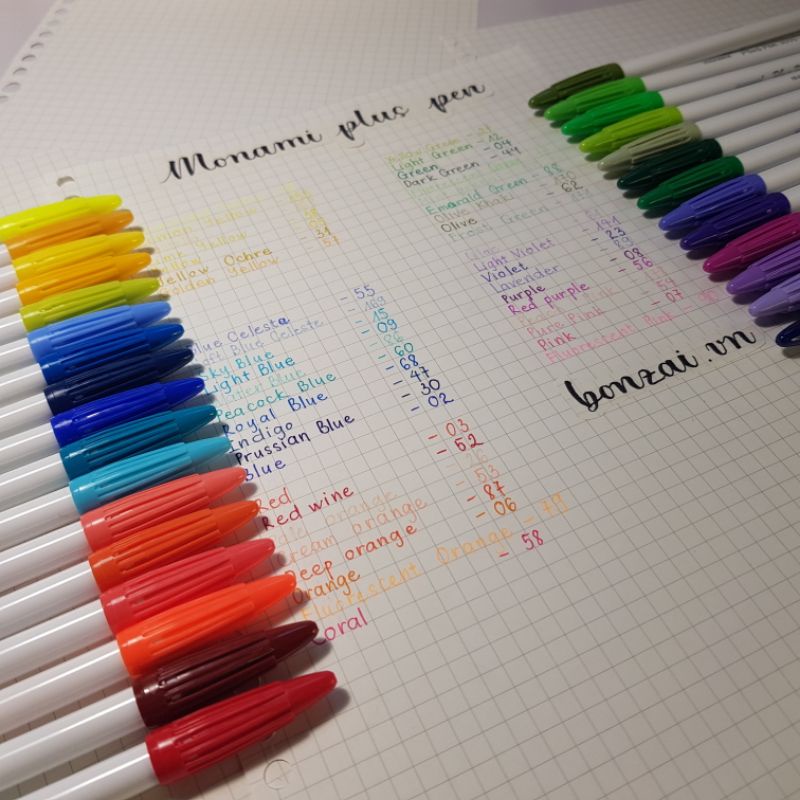 Monami plus pen
Yellow
Yellow Ochre
Golden Yellow - 57
Blue Celesta - 55
Soft Blue Celeste - 169
Sky Blue - 15
Light Blue - 09
Water Blue - 86
Peacock Blue - 60
Royal Blue - 68
Indigo - 47
Prussian Blue - 30
Blue - 02
Red - 03
Red wine - 52
orange
Cream orange - 53
Deep orange - 87
Orange - 06
Fluorescent Orange - 79
Coral - 58
Light Green - 12
Green - 04
Dark Green - 44
Emarald Green - 88
Olive Khaki - 170
Olive - 62
Frost Green
Lilac
Light Violet - 171
Violet - 23
Lavender - 89
Purple - 08
Red purple - 56
Pure Pink - 59
Pink - 07
Fluorescent Pink
bonzai.vn